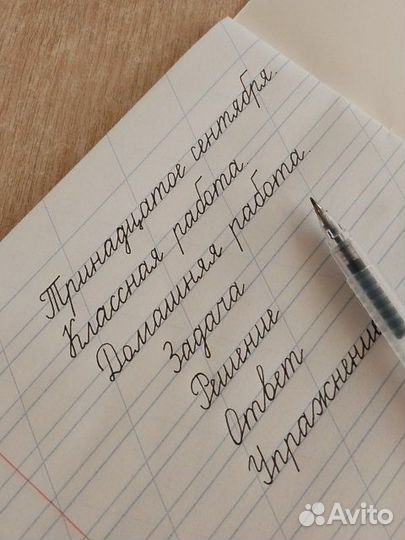 Тринадцатое сентября.
Классная работа.
Домашняя работа.
Задача
Решение
Ответ
Упражнени
Avito